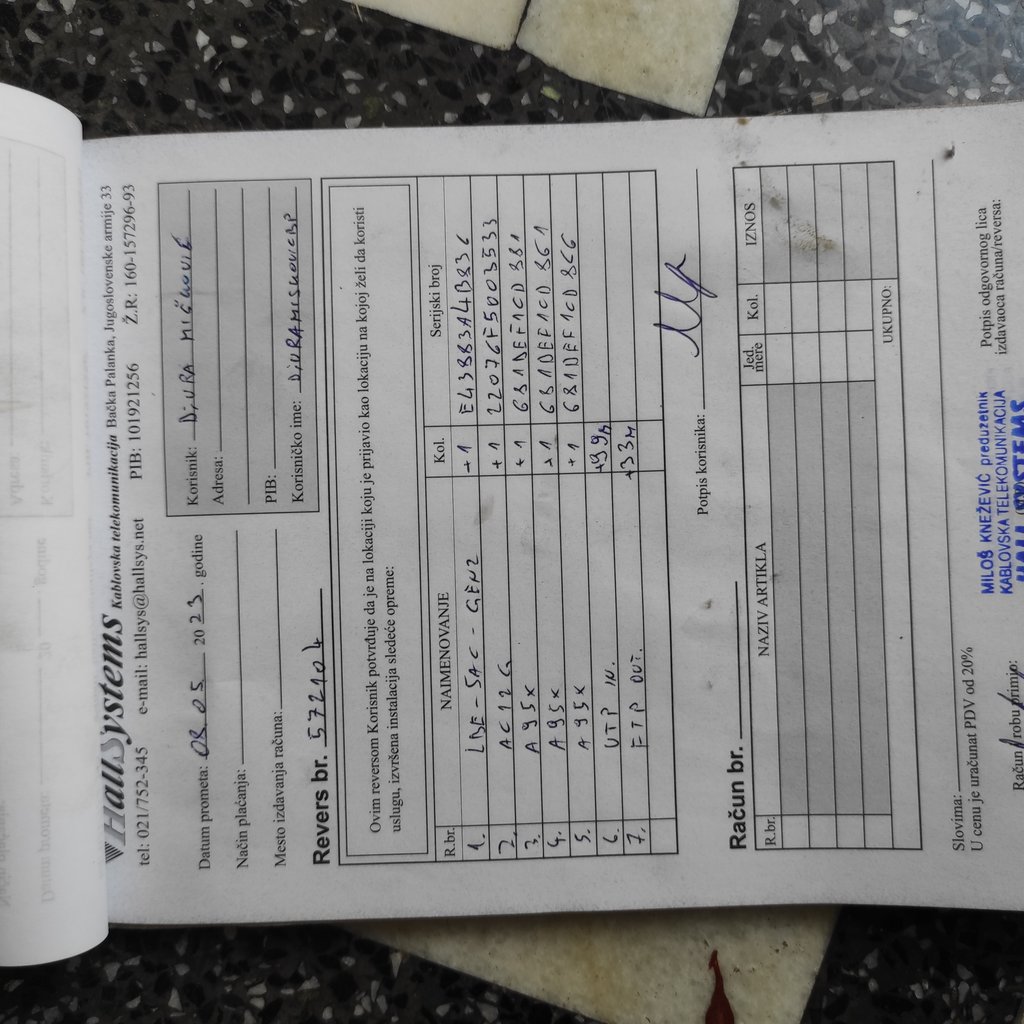 HallSystems Kablovska telekomunikacija Bačka Palanka, Jugoslovenske armije 33
tel: 021/752-345 e-mail: hallsys@hallsys.net PIB: 101921256 Ž.R: 160-157296-93
Datum prometa: 08 05 2023. godine
Način plaćanja:
Mesto izdavanja računa:
Korisnik: DiURA MIČKOVIĆ
Adresa:
PIB:
Korisničko ime:
Revers br. 572104
Ovim reversom Korisnik potvrđuje da je na lokaciji koju je prijavio kao lokaciju na kojoj želi da koristi
uslugu, izvršena instalacija sledeće opreme:
R.br. NAIMENOVANJE Kol. Serijski broj
1. LBE-5AC-GEN2 +1
2. AC12G +1 22076F5003533
3. A95X +1 681DEF1CD881
4. A95X +1 681DEF1CD861
5. A95X +1 681DEF1CD866
6. UTP IN. +99m
7. FTP OUT. +33m
Potpis korisnika:
Račun br.
R.br. NAZIV ARTIKLA Jed. mere Kol. IZNOS
UKUPNO:
Slovima:
U cenu je uračunat PDV od 20%
Potpis odgovornog lica
izdavaoca računa/reversa:
MILOŠ KNEŽEVIĆ preduzetnik
KABLOVSKA TELEKOMUNIKACIJA
HALL SYSTEMS
Račun / robu primio: